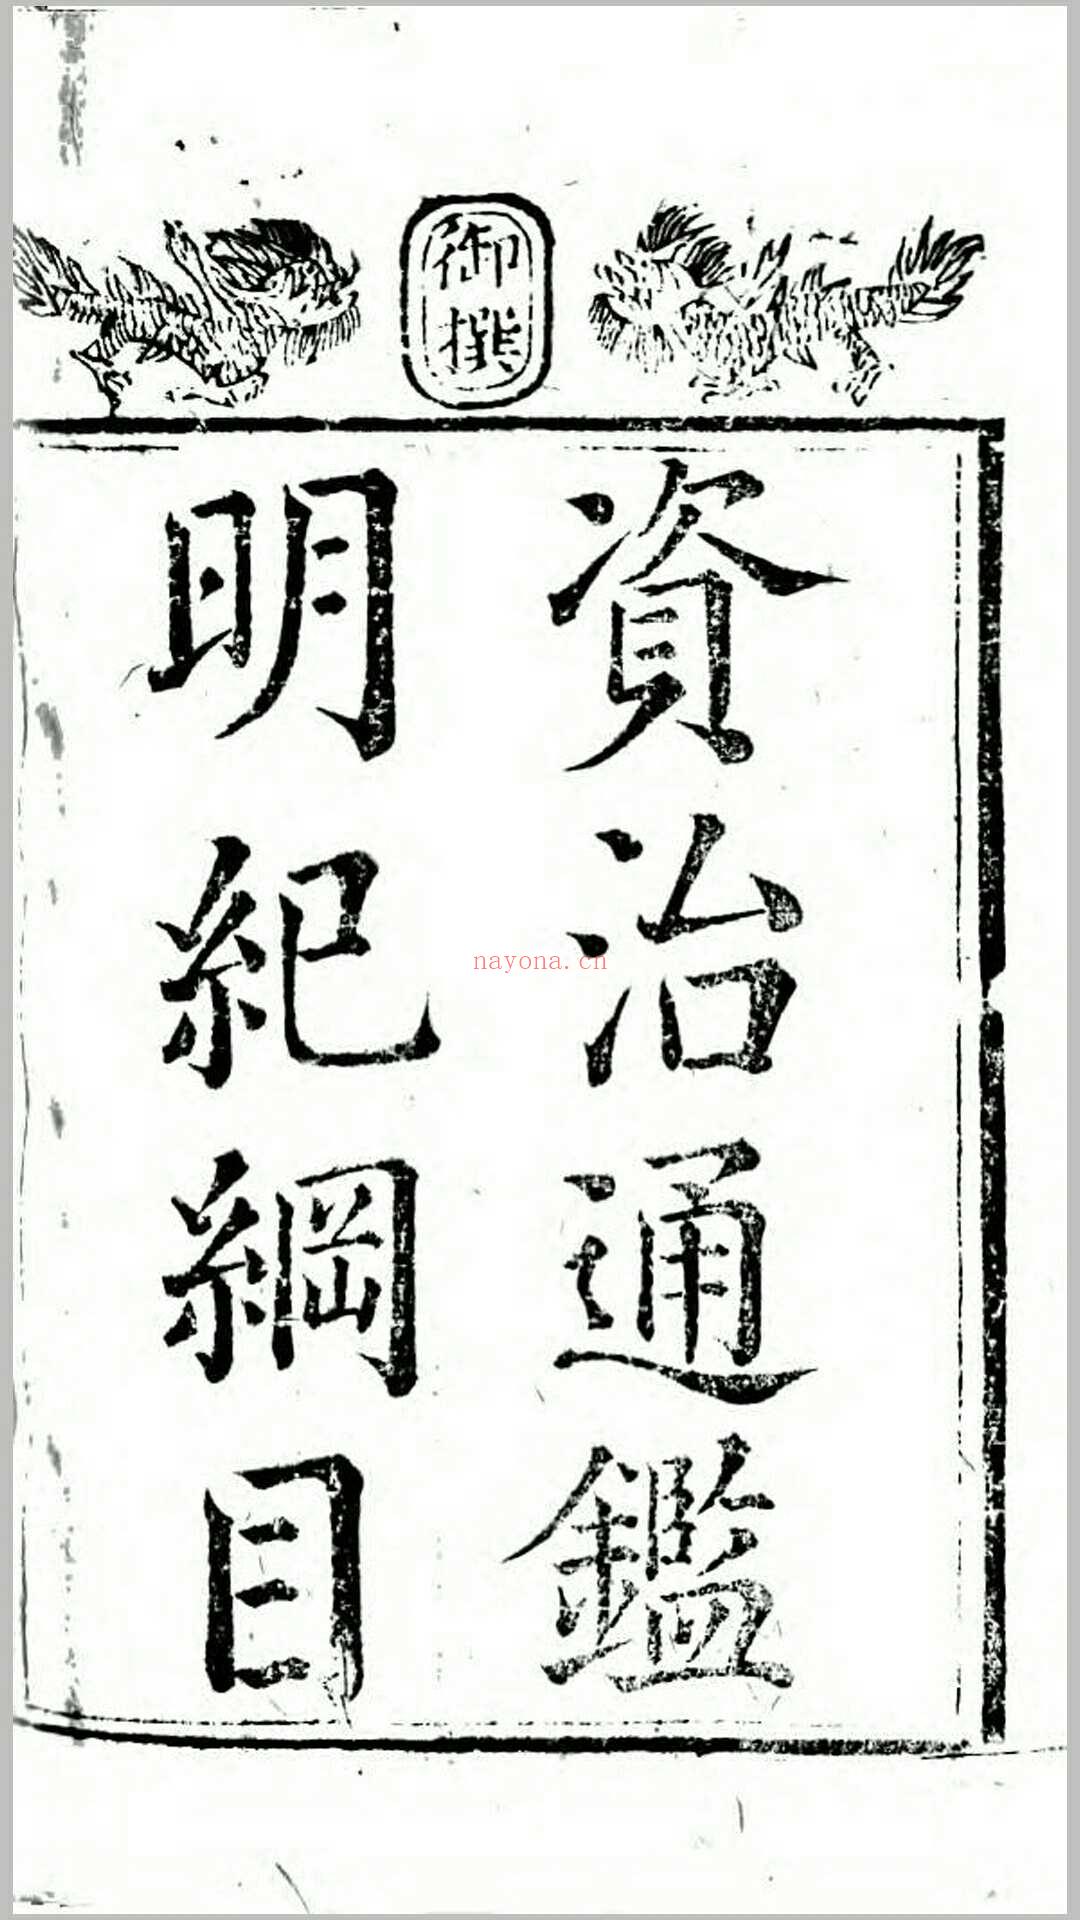 御撰
資治通鑑
明紀綱目
nayona.cn